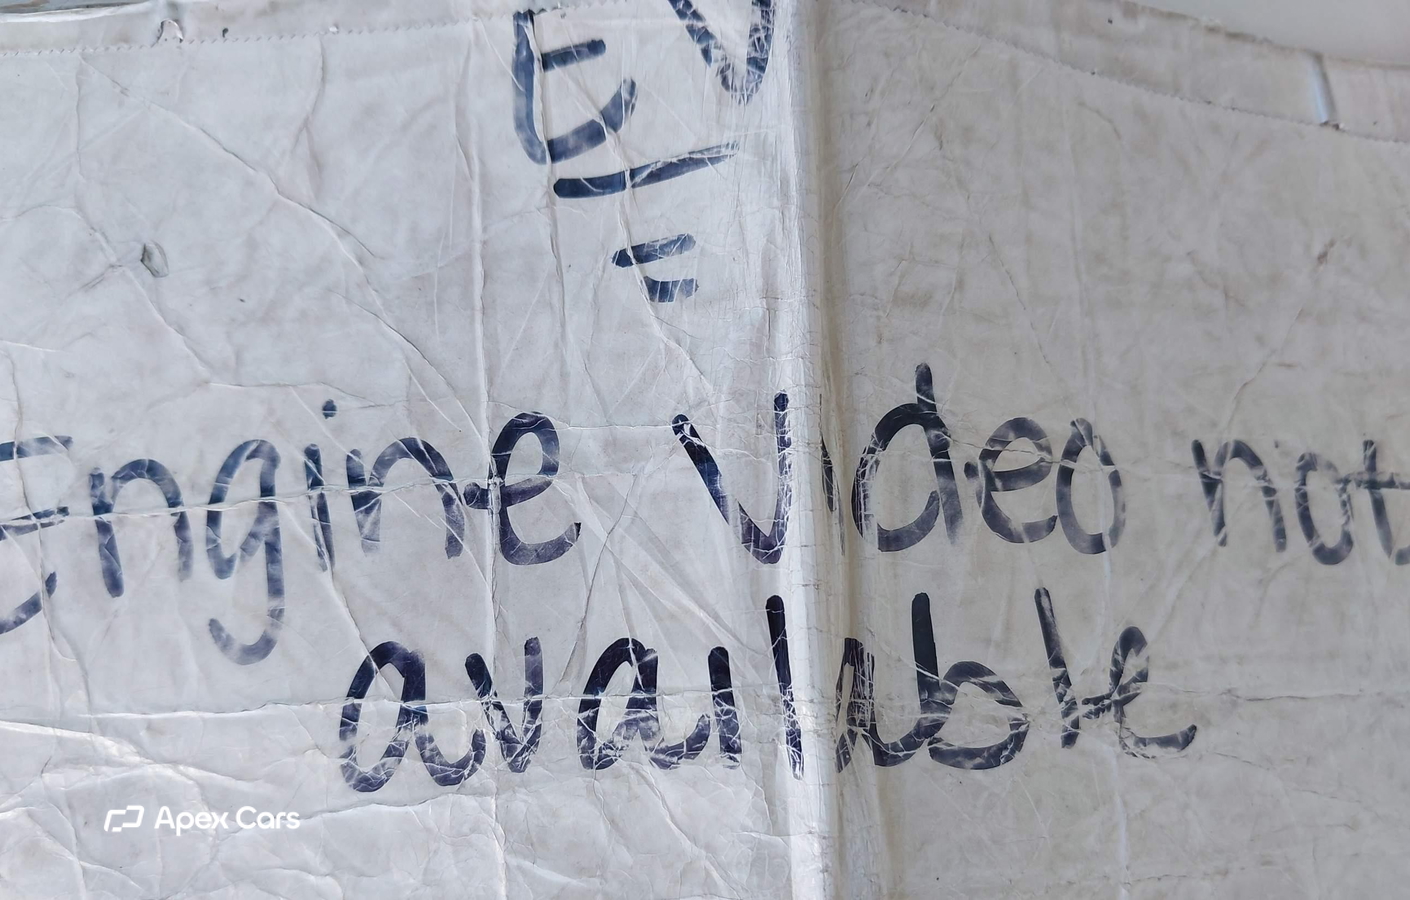 EV
Engine Video not
available
Apex Cars